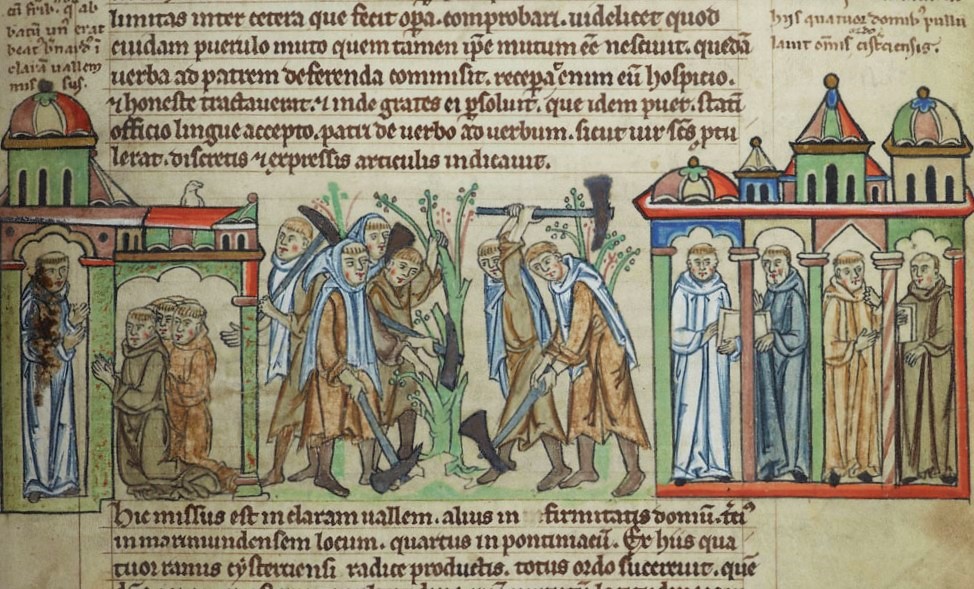 cū frib. q ab
batū un erat
beat bnard i
clarā uallem
mis sus.
limitas inter cetera que fecit opa. comprobari. uidelicet quod
cuidam puerulo muto quem tamen ipe mutum ēē nesciuit. quedā
uerba ad patrem deferenda commisit. recepat enim eū hospicio.
⁊ honeste tractauerat. ⁊ inde grates ei psoluit. que idem puer. statī
officio lingue accepto. patri de uerbo ad uerbum. sicut uir scs ptu
lerat. discretis ⁊ expressis articulis indicauit.
hiis quatuor domib pullu
lauit omīs ordo cisterciensis.
Hic missus est in claram uallem. alius in firmitatis domū. tcī
in marimundensem locum. quartus in pontiniacū. Ex hiis qua
tuor ramis cysterciensi radice productis. totus ordo succreuit. quē